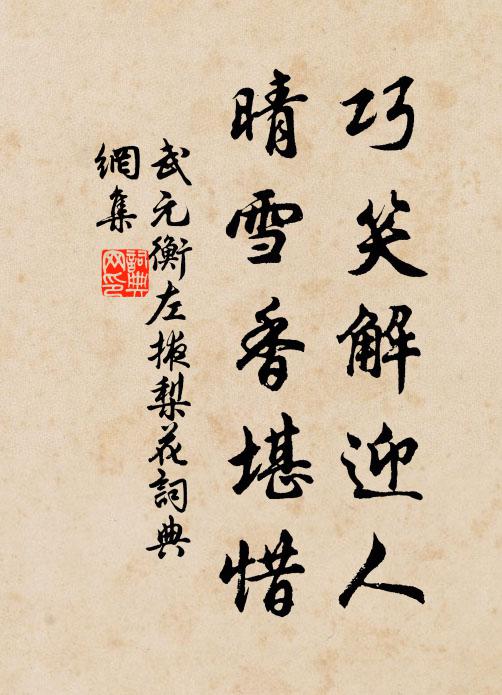 巧笑解迎人
晴雪香堪惜
武元衡左掖梨花詞典
網集
詞典
网印